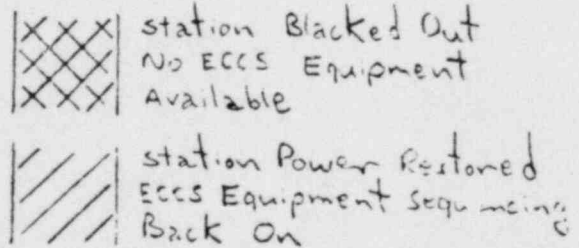 Station Blacked Out
No ECCS Equipment
Available
Station Power Restored
ECCS Equipment Sequencing
Back On